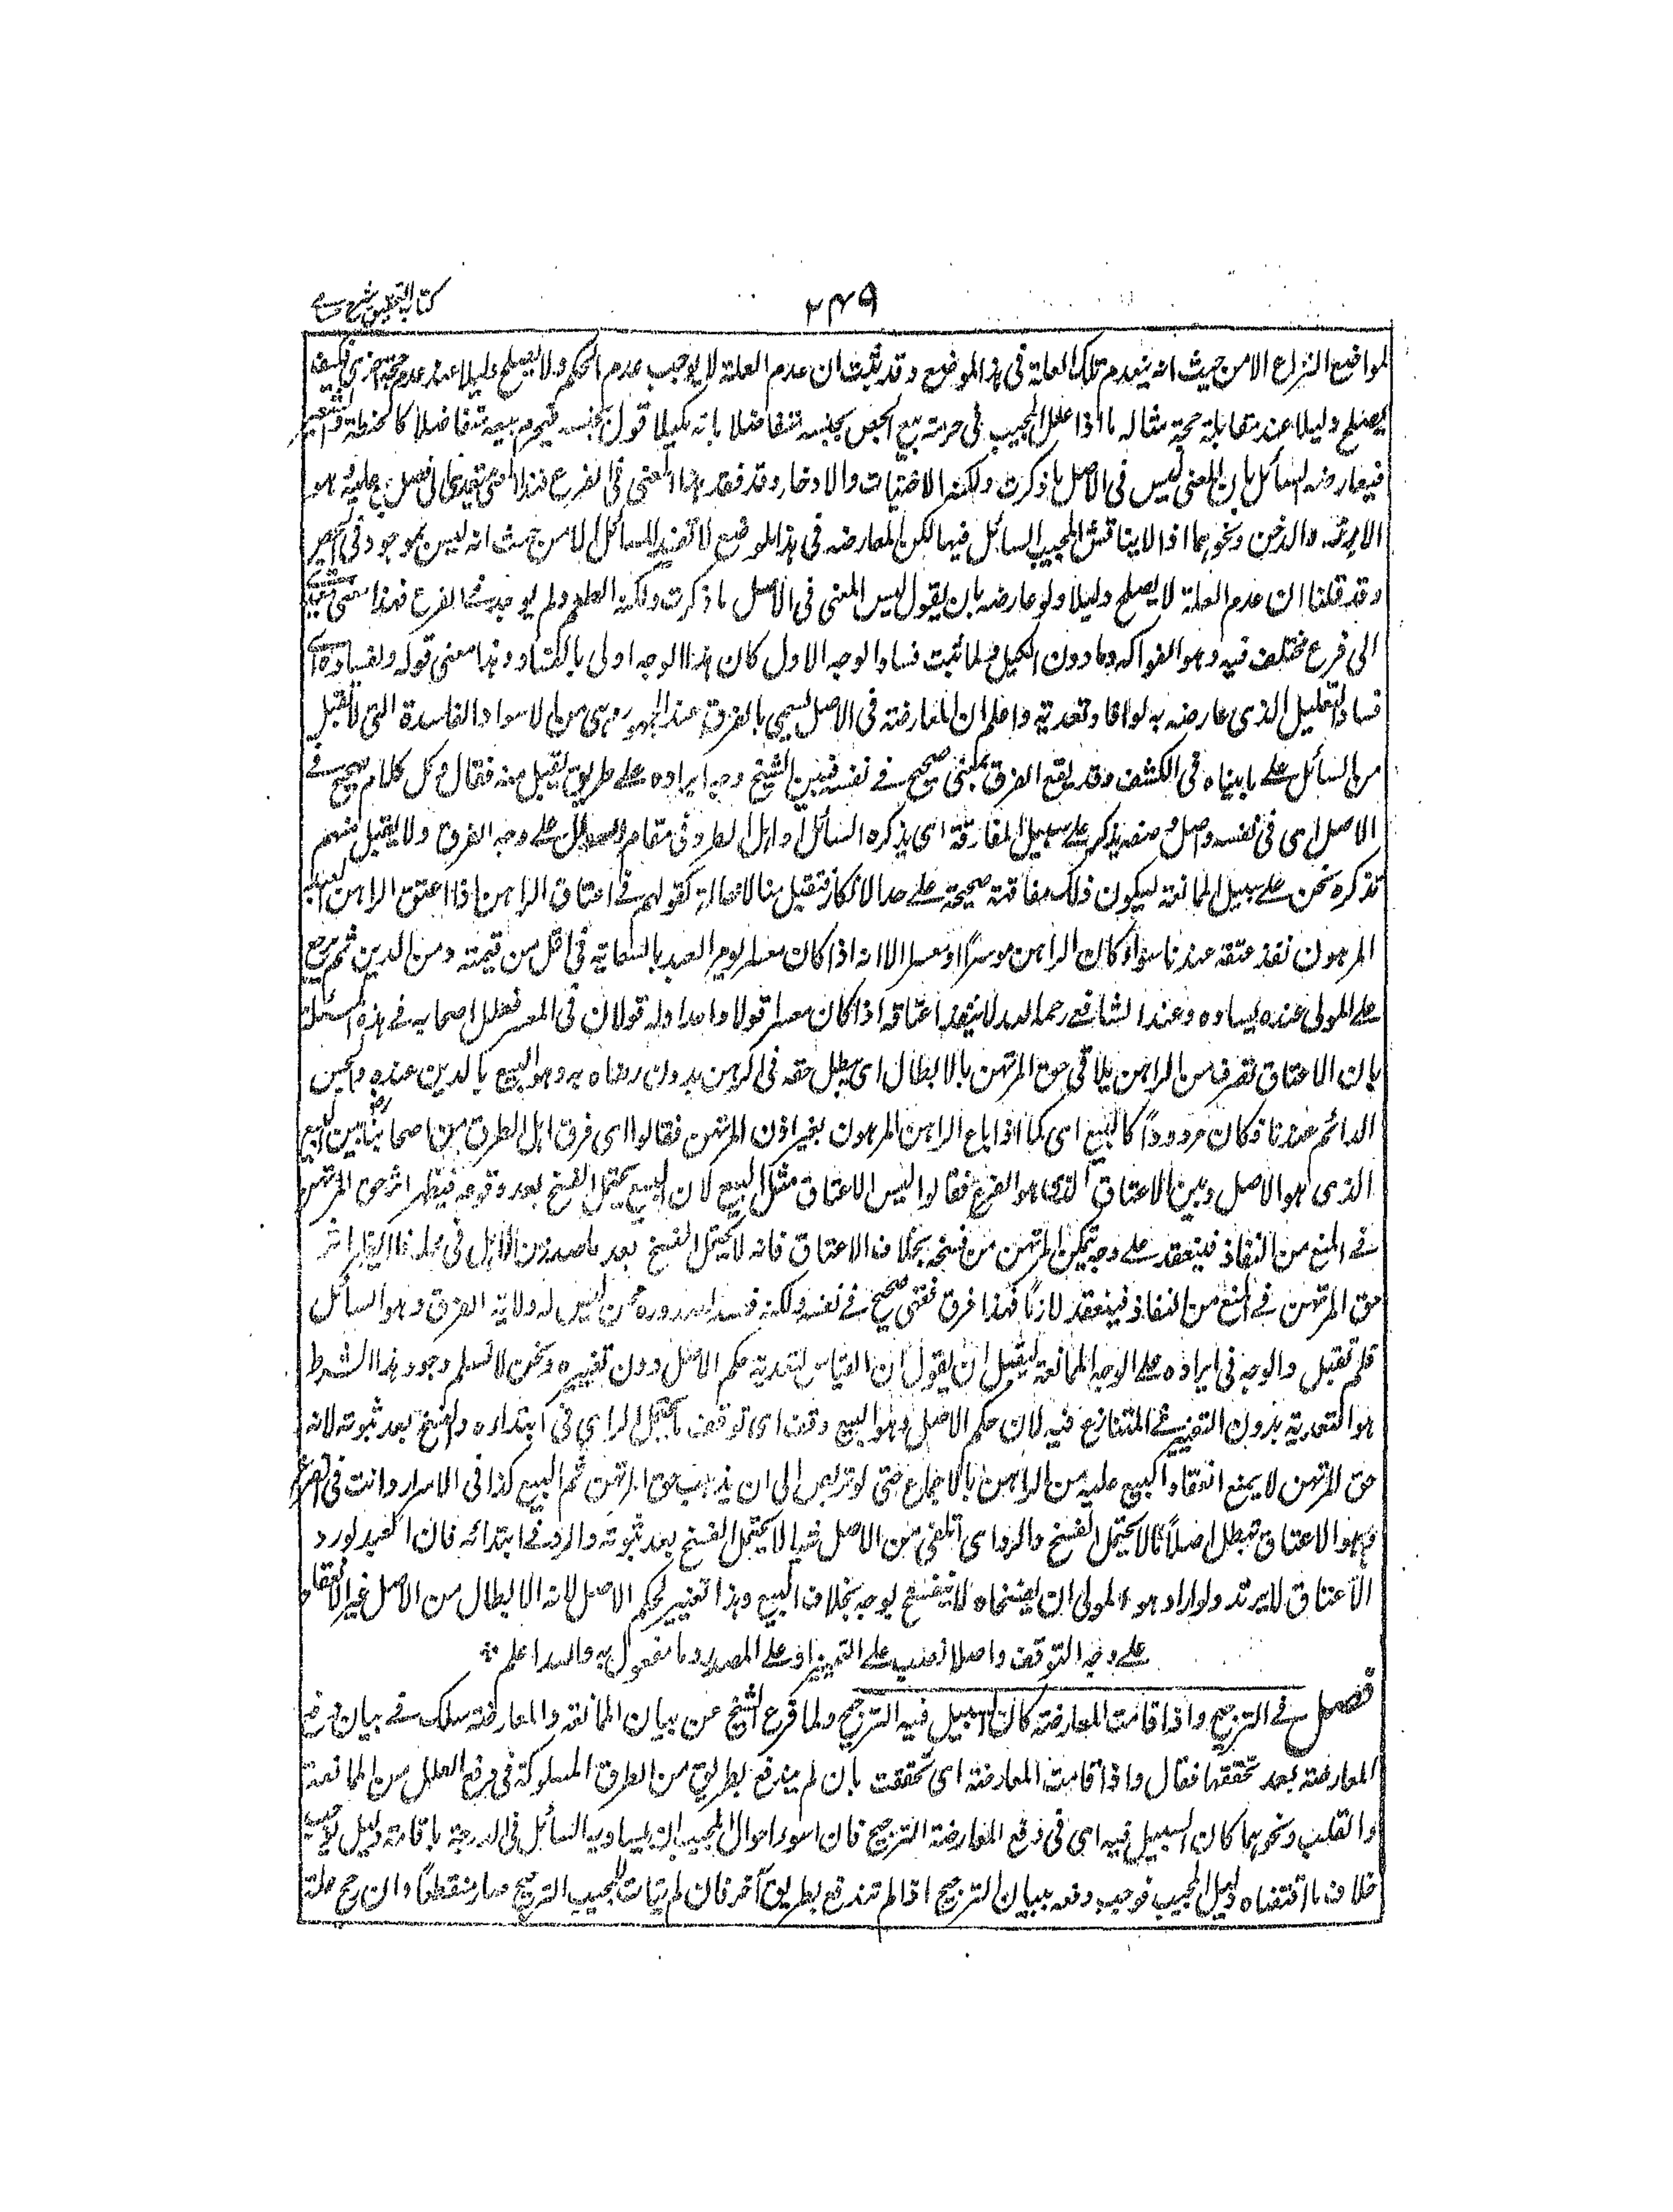 كتاب التحقيق شرح حسامى
٢٤٩
لمواضع النزاع الا من حيث انه ينعدم تلك العلة فى هذا الموضع وقد ثبت ان عدم العلة لا يوجب عدم الحكم ولا يصلح دليلا عند عدم حجة اخرى فكيف
يصلح دليلا عند مقابلة حجة مثاله ما اذا علل المجيب فى حرمة بيع الجص بجنسه متفاضلا بانه مكيل قوبل بجنسه فيحرم بيعه متفاضلا كالحنطة والشعير
فيعارضه السائل بان المعنى ليس فى الاصل ما ذكرت ولكنه الاقتيات والادخار وقد فقد هذا المعنى فى الفرع فهذا المعنى يتعدى الى فصل مجمع عليه هو
الارز والدخن ونحوهما اذ لا يناقش المجيب السائل فيها لكن المعارضة فى هذا الموضع لا تفيد للسائل الا من حيث انه ليس بموجود فى الجص
وقد قلنا ان عدم العلة لا يصلح دليلا ولو عارضه بان يقول ليس المعنى فى الاصل ما ذكرت ولكنه الطعم ولم يوجد فى الفرع فهذا معنى يتعدى
الى فرع مختلف فيه وهو الفواكه وما دون الكيل فلما ثبت فساد الوجه الاول كان هذا الوجه اولى بالفساد وهذا معنى قوله ولفساده اى
فساد التعليل الذى عارضه به لو افاد تعديته واعلم ان المعارضة فى الاصل تسمى بالفرق عند الجمهور وهى من الاسولة الفاسدة التى لا تقبل
من السائل على ما بيناه فى الكشف وقد يقع الفرق بمعنى صحيح فى نفسه فبين الشيخ وجه ايراده على طريق تقبل منه فقال وكل كلام صحيح فى
الاصل اى فى نفسه واصل وضعه يذكر على سبيل المفارقة اى يذكره السائل او اهل الطرد فى مقام السؤال على وجه الفرق ولا يقبل منهم
نذكره نحن على سبيل الممانعة ليكون ذلك مفاقهة صحيحة على حد الانكار فتقبل منا لا محالة كقولهم فى اعتاق الراهن اذا اعتق الراهن العبد
المرهون نفذ عتقه عندنا سواء كان الراهن موسرًا او معسرا الا انه اذا كان معسرا يؤمر العبد بالسعاية فى اقل من قيمته ومن الدين ثم يرجع
على المولى عند يساره وعند الشافعى رحمه الله لا ينفذ اعتاقه اذا كان معسرا قولا واحدا وله قولان فى الموسر فعلل اصحابه فى هذه المسئلة
بان الاعتاق تصرف من الراهن يلاقى حق المرتهن بالابطال اى يبطل حقه فى الرهن بدون رضاه به وهو البيع بالدين عنده والحبس
الدائم عندنا فكان مردودًا كالبيع اى كما اذا باع الراهن المرهون بغير اذن المرتهن فقالوا اى فرق اهل الطرد من اصحابنا بين البيع
الذى هو الاصل وبين الاعتاق الذى هو الفرع فقالوا ليس الاعتاق مثل البيع لان البيع يحتمل الفسخ بعد وقوعه فيظهر اثر حق المرتهن
فى المنع من النفاذ فينعقد على وجه يتمكن المرتهن من فسخه بخلاف الاعتاق فانه لا يحتمل الفسخ بعد ما صدر من الاهل فى محله فلا يظهر اثر
حق المرتهن فى المنع من النفاذ فينعقد لازمًا فهذا فرق فقهى صحيح فى نفسه ولكنه فسد لصدوره ممن ليس له ولاية الفرق وهو السائل
فلم تقبل والوجه فى ايراده على الوجه الممانعة ليقبل ان يقول ان القياس لتعدية حكم الاصل دون تغييره ونحن لا نسلم وجود هذا الشرط
هو التعدية بدون التغيير فى المتنازع فيه لان حكم الاصل وهو البيع وقف اى توقف ما يحتمل الراى فى ابتداره والفسخ بعد ثبوته لانه
حق المرتهن لا يمنع انعقاد البيع عليه من الراهن بالاجماع حتى لو تربص الى ان يذهب حق المرتهن تم البيع كذا فى الاسرار وانت فى الفرع
وهو الاعتاق تبطل اصلًا ما لا يحتمل الفسخ والرد اى تلغى من الاصل شيا لا يحتمل الفسخ بعد ثبوته والرد فى ابتدائه فان العبد لو رد
الاعتاق لا يرتد ولو اراد هو والمولى ان يفسخاه لا ينفسخ بوجه بخلاف البيع وهذا تغيير لحكم الاصل لانه الابطال من الاصل غير الانعقاد
على وجه التوقف واصلا نصب على التمييز او على المصدر وما مفعول به والله اعلم
فصل فى الترجيح واذا قامت المعارضة كان السبيل فيه الترجيح ولما فرغ الشيخ عن بيان الممانعة والمعارضة سلك فى بيان دفع
المعارضة بعد تحققها فقال واذا قامت المعارضة اى تحققت بان لم يندفع بطريق من الطرق المسلوكة فى دفع العلل من الممانعة
والقلب ونحوهما كان السبيل فيه اى فى دفع المعارضة الترجيح فان اسوء احوال المجيب ان يساويه السائل فى الدرجة باقامة دليل يوجب
خلاف ما اقتضاه دليل المجيب فوجب دفعه ببيان الترجيح اذا لم تندفع بطريق آخر فان لم يتات للمجيب الترجيح صار منقطعًا وان رجح علته